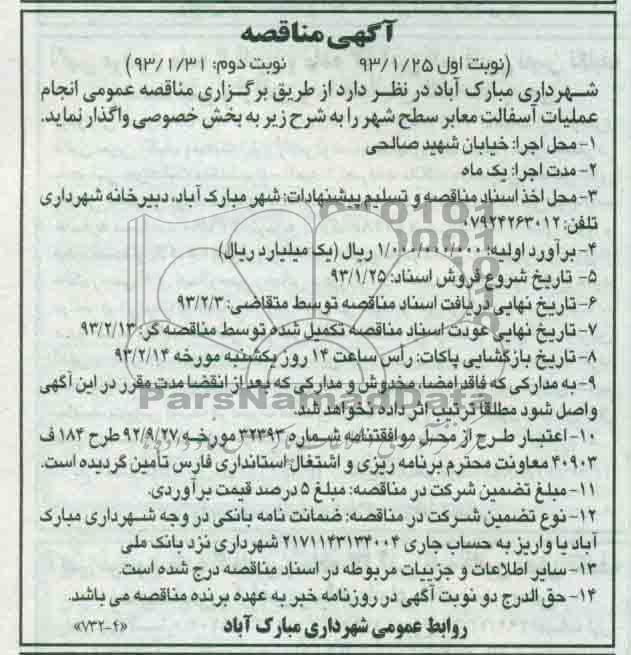 آگهی مناقصه
(نوبت اول ۹۳/۱/۲۵ نوبت دوم: ۹۳/۱/۳۱)
شهرداری مبارک آباد در نظر دارد از طریق برگزاری مناقصه عمومی انجام
عملیات آسفالت معابر سطح شهر را به شرح زیر به بخش خصوصی واگذار نماید.
۱- محل اجرا: خیابان شهید صالحی
۲- مدت اجرا: یک ماه
۳- محل اخذ اسناد مناقصه و تسلیم پیشنهادات: شهر مبارک آباد، دبیرخانه شهرداری
تلفن: ۰۷۹۲۴۲۶۳۰۱۲
۴- برآورد اولیه: ۱/۰۰۰/۰۰۰/۰۰۰ ریال (یک میلیارد ریال)
۵- تاریخ شروع فروش اسناد: ۹۳/۱/۲۵
۶- تاریخ نهایی دریافت اسناد مناقصه توسط متقاضی: ۹۳/۲/۳
۷- تاریخ نهایی عودت اسناد مناقصه تکمیل شده توسط مناقصه گر: ۹۳/۲/۱۳
۸- تاریخ بازگشایی پاکات: رأس ساعت ۱۴ روز یکشنبه مورخه ۹۳/۲/۱۴
۹- به مدارکی که فاقد امضا، مخدوش و مدارکی که بعد از انقضا مدت مقرر در این آگهی
واصل شود مطلقا ترتیب اثر داده نخواهد شد.
ParsNamadData
۱۰- اعتبار طرح از محل موافقتنامه شماره ۳۲۳۹۳ مورخه ۹۲/۹/۲۷ طرح ۱۸۴ ف
۴۰۹۰۳ معاونت محترم برنامه ریزی و اشتغال استانداری فارس تأمین گردیده است.
۱۱- مبلغ تضمین شرکت در مناقصه: مبلغ ۵ درصد قیمت برآوردی.
۱۲- نوع تضمین شرکت در مناقصه: ضمانت نامه بانکی در وجه شهرداری مبارک
آباد یا واریز به حساب جاری ۲۱۷۱۱۴۳۱۳۴۰۰۴ شهرداری نزد بانک ملی
۱۳- سایر اطلاعات و جزییات مربوطه در اسناد مناقصه درج شده است.
۱۴- حق الدرج دو نوبت آگهی در روزنامه خبر به عهده برنده مناقصه می باشد.
روابط عمومی شهرداری مبارک آباد
«۷۳۲-۴»